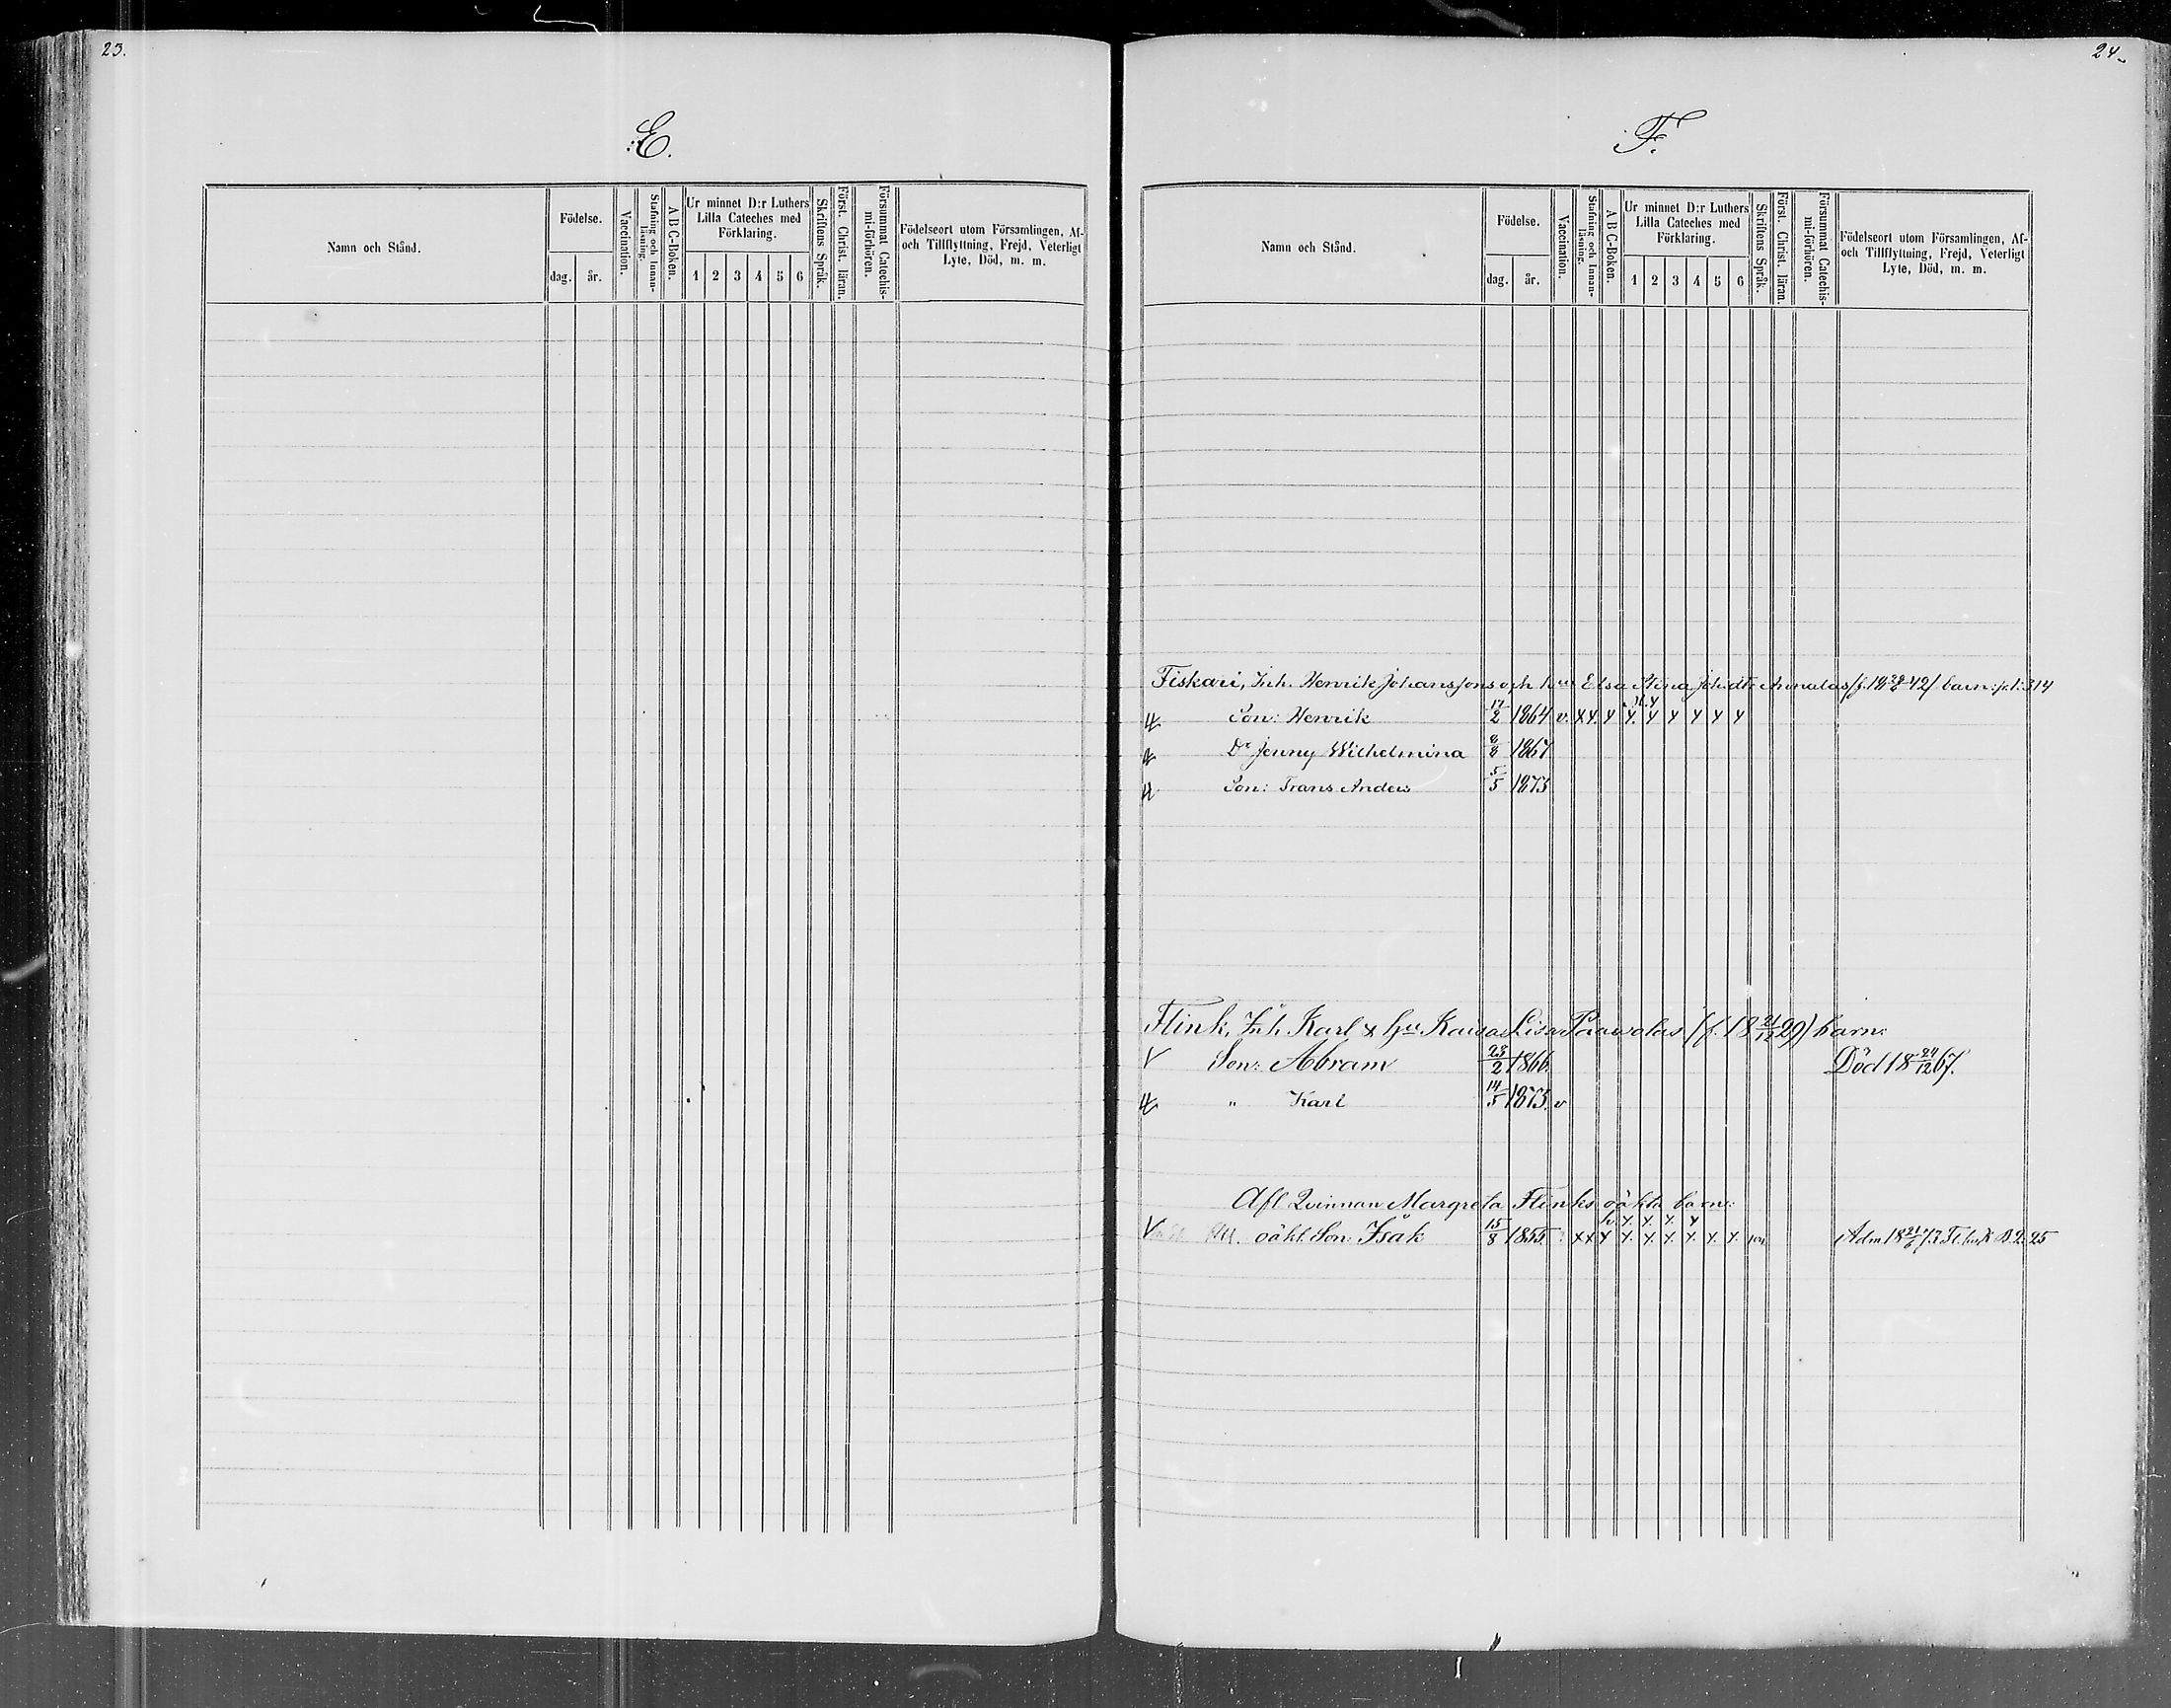 23.
E.
Namn och Stånd.
Födelse.
dag.
år.
Vaccination.
Stafning och Innan-
läsning.
A B C-Boken.
Ur minnet D:r Luthers
Lilla Cateches med
Förklaring.
1 2 3 4 5 6
Skriftens Språk.
Först. Christ. läran.
Försummat Catechis-
mi-förhören.
Födelseort utom Församlingen, Af-
och Tillflyttning, Frejd, Veterligt
Lyte, Död, m. m.
24.
F.
Namn och Stånd.
Födelse.
dag.
år.
Vaccination.
Stafning och Innan-
läsning.
A B C-Boken.
Ur minnet D:r Luthers
Lilla Cateches med
Förklaring.
1 2 3 4 5 6
Skriftens Språk.
Först. Christ. läran.
Försummat Catechis-
mi-förhören.
Födelseort utom Församlingen, Af-
och Tillflyttning, Frejd, Veterligt
Lyte, Död, m. m.
Fiskari, Inh. Henrik Johansson och hu Elsa Stina barn: 314
Son: Henrik 17/2 1864 v.
Dr Jenny Wilhelmina 8/8 1867
Son: Frans Anders 5/5 1873
Flink, Inh. Karl & hu Kaisa Lisa Paavolas (f. 18 21/12 29) barn:
V Son: Abram 23/2 1866 Död 18 24/12 67.
" Karl 14/5 1873. v
Afl Qvinnan Margreta Flinks oäkta barn:
V oäkt. Son: Isak 15/8 1855 Adm 18 21/6 73